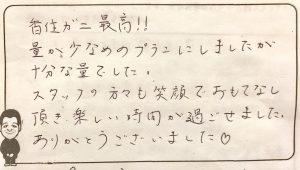 香住ガニ最高!!
量が少なめのプランにしましたが
十分な量でした。
スタッフの方々も笑顔でおもてなし
頂き、楽しい時間が過ごせました。
ありがとうございました♡